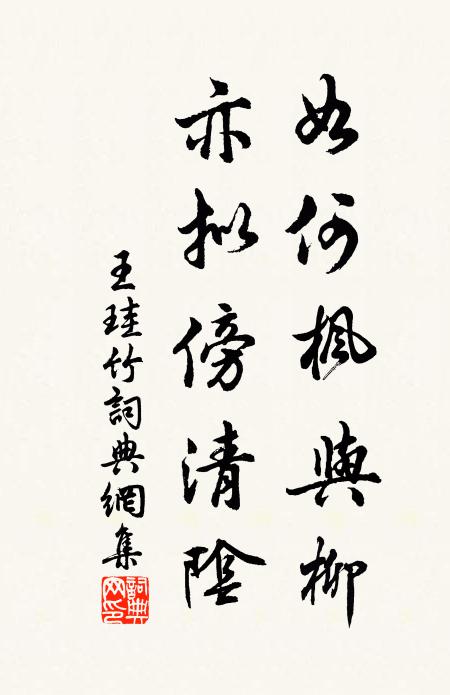 如何楓與柳
亦拟傍清陰
王珪竹詞典網集
詞典网印